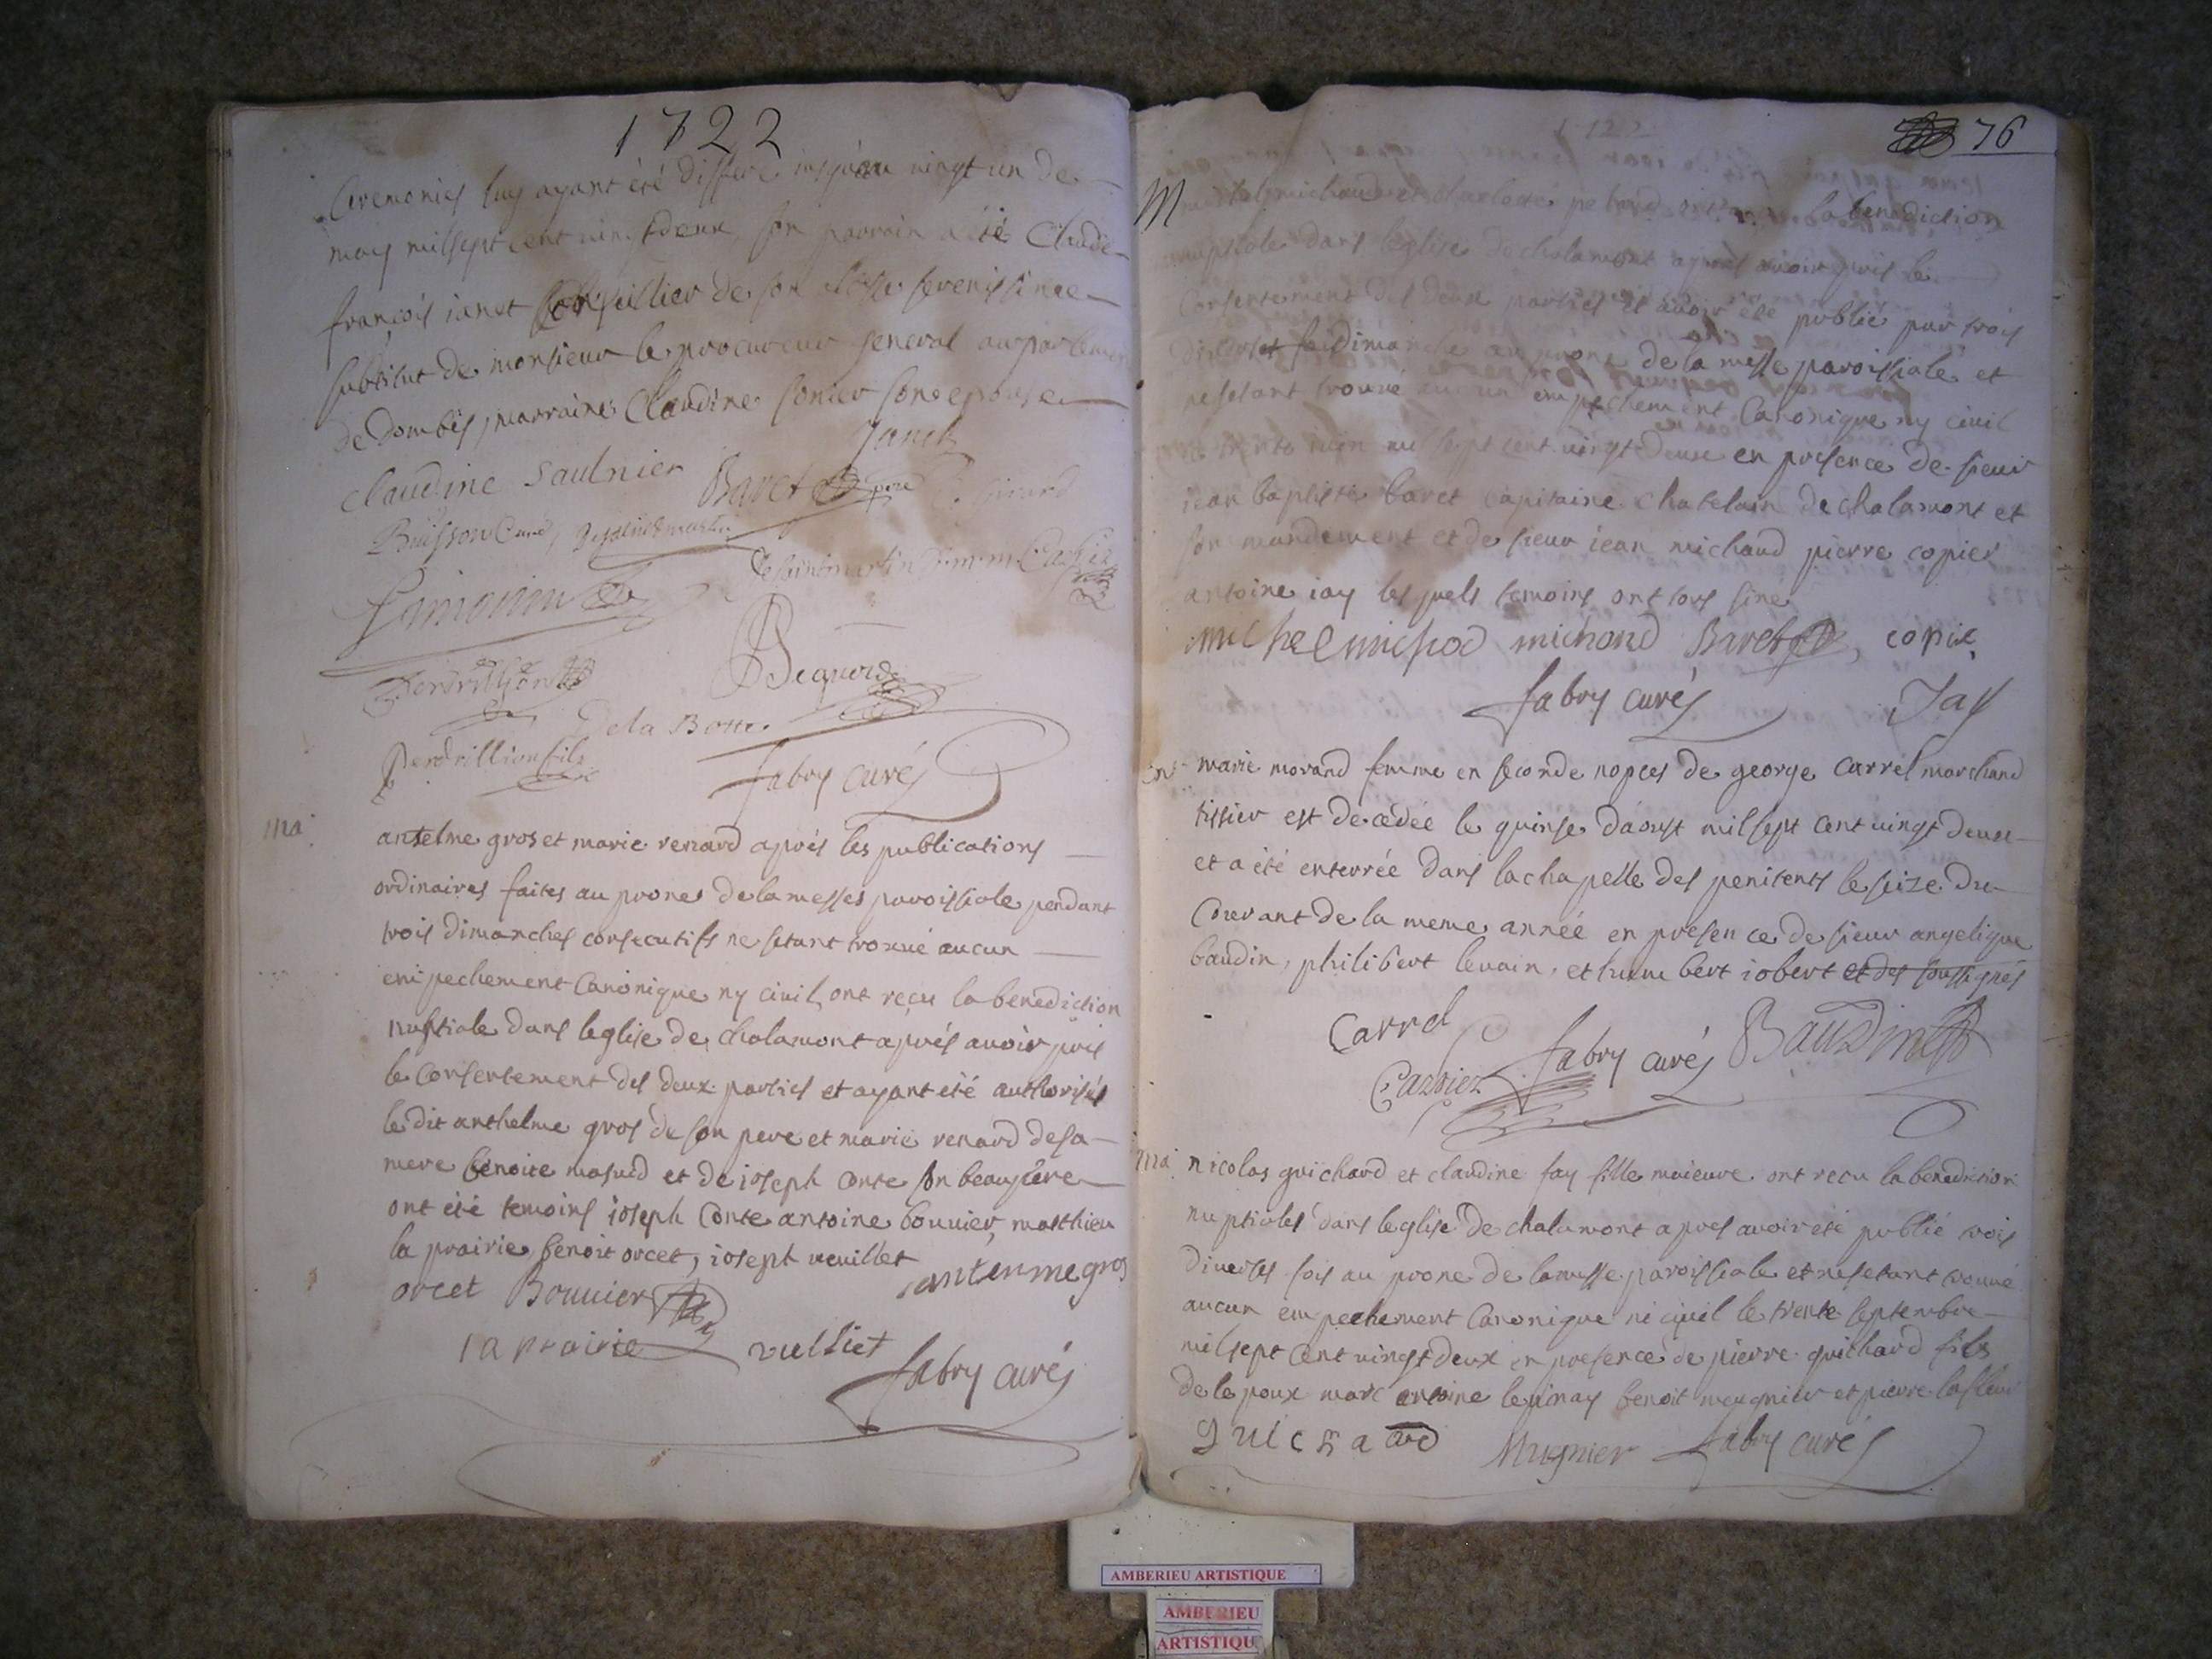 1722
Ceremonies luy ayant été differé jusqu'au vingt un de
may mil sept cent vingt deux, son parrain a été Claude
françois ianet Conseillier de son altesse serenissime
substitut de monsieur le procureur general au parlement
de dombes, marraine Claudine sonier son epouse
Janet
claudine saulnier Baret pere Girard
Buisson Curé,
de saint martin
Perdrillion fils
De la Botte
fabry curé
ma
anselme gros et marie renard aprés les publications
ordinaires faites au prones de la messes paroissiale pendant
trois dimanches consecutifs ne setant trouvé aucun
empechement Canonique ny civil, ont recu la benediction
nuptiale dans leglise de chalamont aprés avoir pris
le consentement des deux parties et ayant été authorisés
le dit anthelme gros de son pere et marie renard de sa
mere benoite masuid et de ioseph conte son beaupére
ont été temoins ioseph Conte antoine bouvier, matthieu
la prairie, benoit orcet, ioseph veuillet
orcet Bouvier antenme gros
la prairie vulliet
fabry curé
76
michel michaud et charlotte la benediction
nuptiale dans leglise de chalamont aprés avoir pris le
Consentement des deux parties et avoir été publié par trois
diverses fois dimanche au prone de la messe paroissiale et
ne setant trouvé aucun empechement Canonique ny civil
le trente juin mil sept cent vingt deux en presence de sieur
iean baptiste baret capitaine chatelain de chalamont et
son mandement et de sieur iean michaud pierre copier
antoine iay les quels temoins ont tous siné
michel michod michaud Baret, copie,
fabry curé Jay
marie morand femme en seconde nopces de george carrel marchand
tissier est decedée le quinse d'aoust mil sept cent vingt deux
et a été enterrée dans la chapelle des penitents le seize du
Courant de la meme année en presence de sieur angelique
baudin, philibert levain, et humbert iobert et des soussignés
Carrel
fabry curé Baudin
Carrier
ma
nicolas guichard et claudine fay fille maieure ont recu la benediction
nuptiales dans leglise de chalamont apres avoir été publié trois
diverses fois au prone de la messe paroissiale et ne setant trouvé
aucun empechement Canonique ni civil le trente septembre
mil sept cent vingt deux en presence de pierre guichard fils
de lepoux marc antoine lepinay benoit meugnier et pierre lafleur
guichard Mugnier fabry curé
AMBERIEU ARTISTIQUE
AMBERIEU
ARTISTIQU